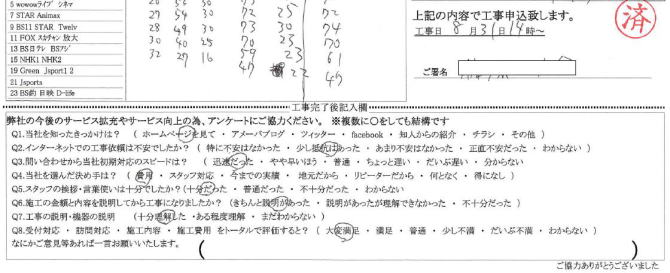 5 wowowライブ シネマ
7 STAR Animax 29 54 30 72 25 72
9 BS11 STAR Twelv 28 49 30 73 30 74
11 FOX スカチャン 放大 30 40 25 70 23 70
13 BS日テレ BSアジ 32 27 16 59 23 61
15 NHK1 NHK2 47 22 47
19 Green Jsport1 2
21 Jsports
23 BS釣 日映 D-life
上記の内容で工事申込致します。
済
工事日 8月31日14時～
ご署名
工事完了後記入欄
弊社の今後のサービス拡充やサービス向上の為、アンケートにご協力ください。 ※複数に○をしても結構です
Q1.当社を知ったきっかけは？ （ ホームページを見て ・ アメーバブログ ・ ツィッター ・ facebook ・ 知人からの紹介 ・ チラシ ・ その他 ）
Q2.インターネットでの工事依頼は不安でしたか？ （ 特に不安はなかった ・ 少し抵抗はあった ・ あまり不安はなかった ・ 正直不安だった ・ わからない ）
Q3.問い合わせから当社初期対応のスピードは？ （ 迅速だった ・ やや早いほう ・ 普通 ・ ちょっと遅い ・ だいぶ遅い ・ 分からない
Q4.当社を選んだ決め手は？ （ 費用 ・ スタッフ対応 ・ 今までの実績 ・ 地元だから ・ リピーターだから ・ 何となく ・ 得になし ）
Q5.スタッフの挨拶・言葉使いは十分でしたか？ （十分だった ・ 普通だった ・ 不十分だった ・ わからない
Q6.施工の金額と内容を説明してから工事になりましたか？ （きちんと説明があった ・ 説明があったが理解できなかった ・ 不十分だった ）
Q7.工事の説明・機器の説明 （十分理解した ・ ある程度理解 ・ まだわからない）
Q8.受付対応 ・ 訪問対応 ・ 施工内容 ・ 施工費用 をトータルで評価すると？ （ 大変満足 ・ 満足 ・ 普通 ・ 少し不満 ・ だいぶ不満 ・ わからない ）
なにかご意見等あれば一言お願いいたします。 （ ）
ご協力ありがとうございました